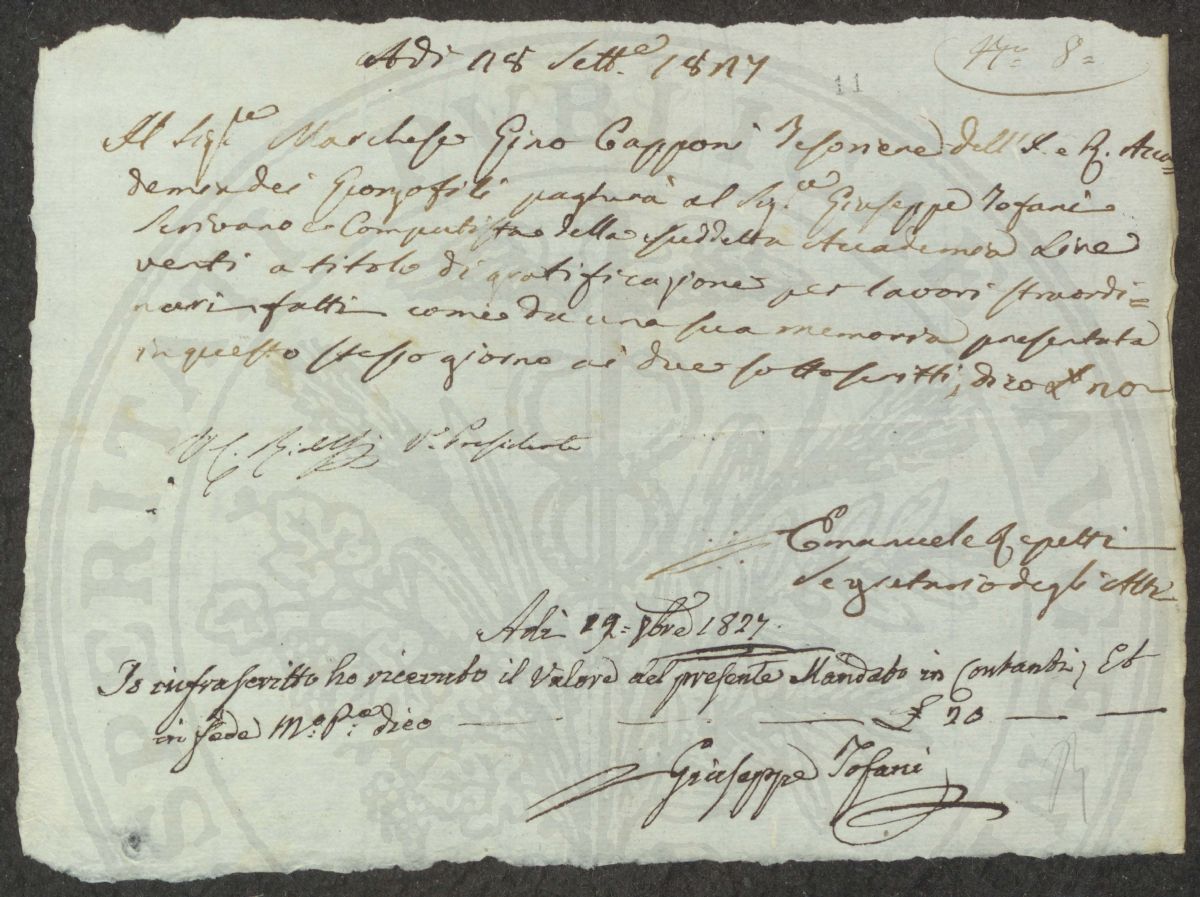 Adì 18 Sett.e 1827
N.o 8=
11
Al Sig.re Marchese Gino Capponi Tesoriere dell' I. e R. Acca=
demia dei Georgofili pagherà al Sig.re Giuseppe Tofani
Scrivano e Computista della suddetta Accademia Lire
venti a titolo di gratificazione per lavori straordi=
nari fatti come da una sua memoria presentata
in questo stesso giorno ai due sottoscritti, dico £ 20
C. Ridolfi V. Presidente
Emanuele Repetti
Segretario degli Atti
Adì 19= 9bre 1827.
Io infrascritto ho ricevuto il Valore del presente Mandato in Contanti, Et
in fede M.o P.o dico — — — — £ 20 — —
Giuseppe Tofani